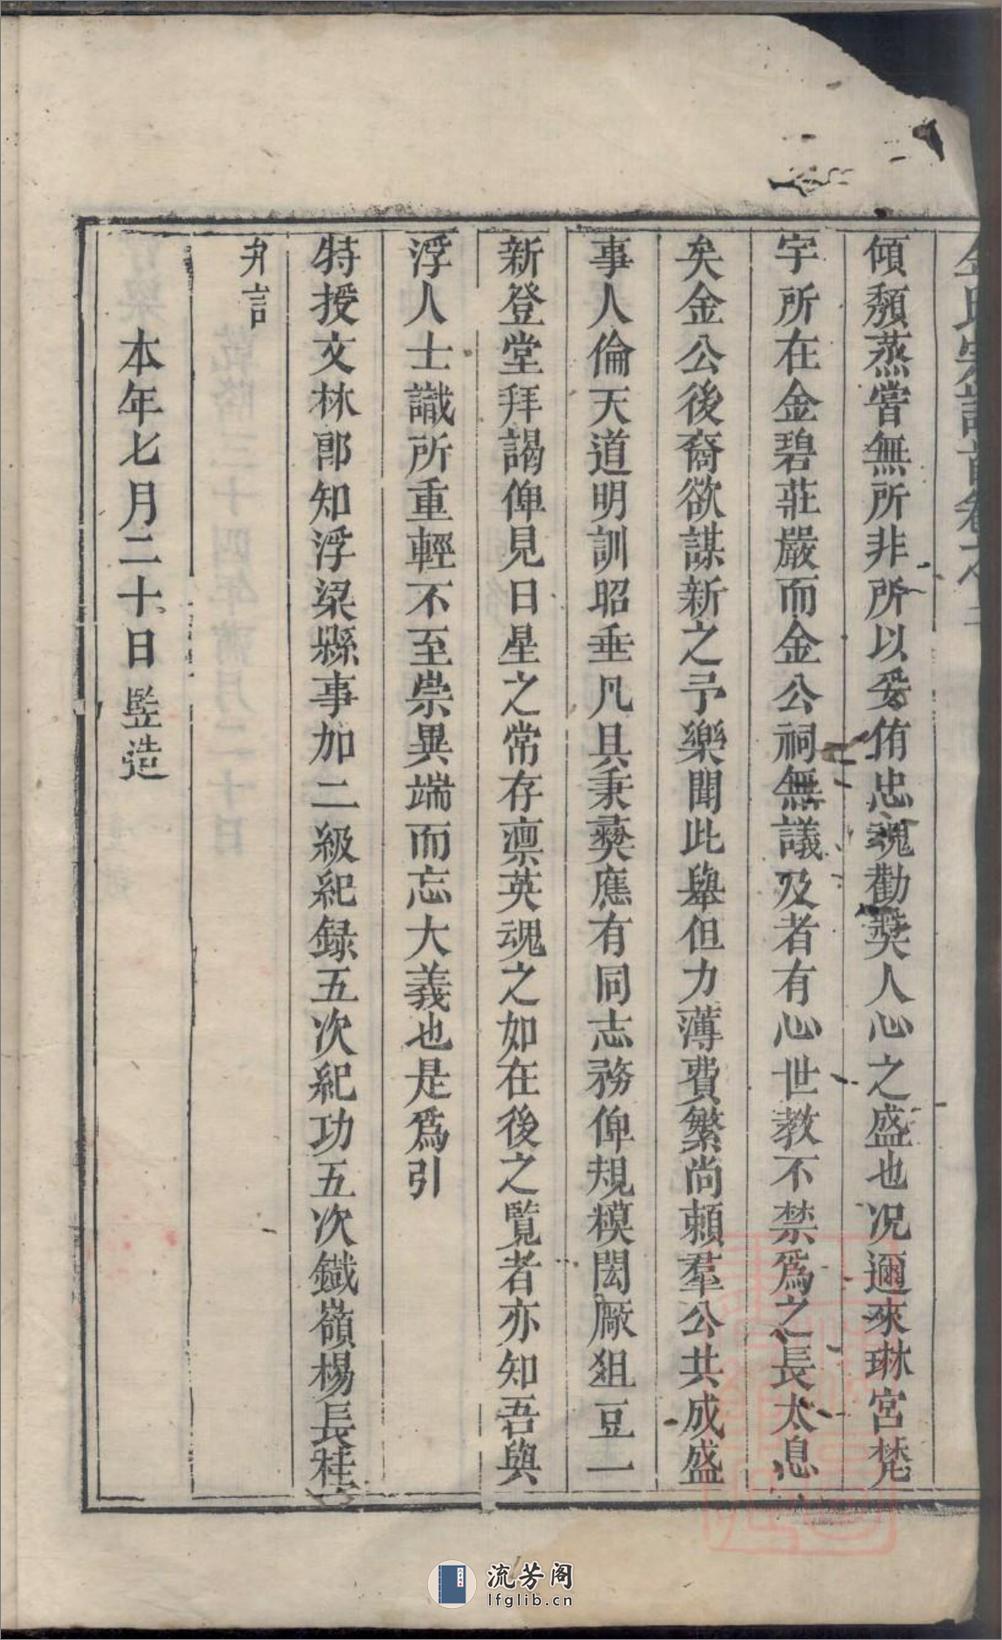 傾頽蒸嘗無所非所以妥侑忠魂勸奬人心之盛也况邇來琳宮梵
宇所在金碧莊嚴而金公祠無議及者有心世教不禁爲之長太息
矣金公後裔欲謀新之予樂聞此舉但力薄費繁尚頼羣公共成盛
事人倫天道明訓昭垂凡具秉彜應有同志務俾規模閎厰俎豆一
新登堂拜謁俾見日星之常存凛英魂之如在後之覧者亦知吾與
浮人士識所重輕不至崇異端而忘大義也是爲引
特授文林郎知浮梁縣事加二級紀録五次紀功五次鐵嶺楊長桂
弁言
本年七月二十日監造
流芳阁
lfglib.cn